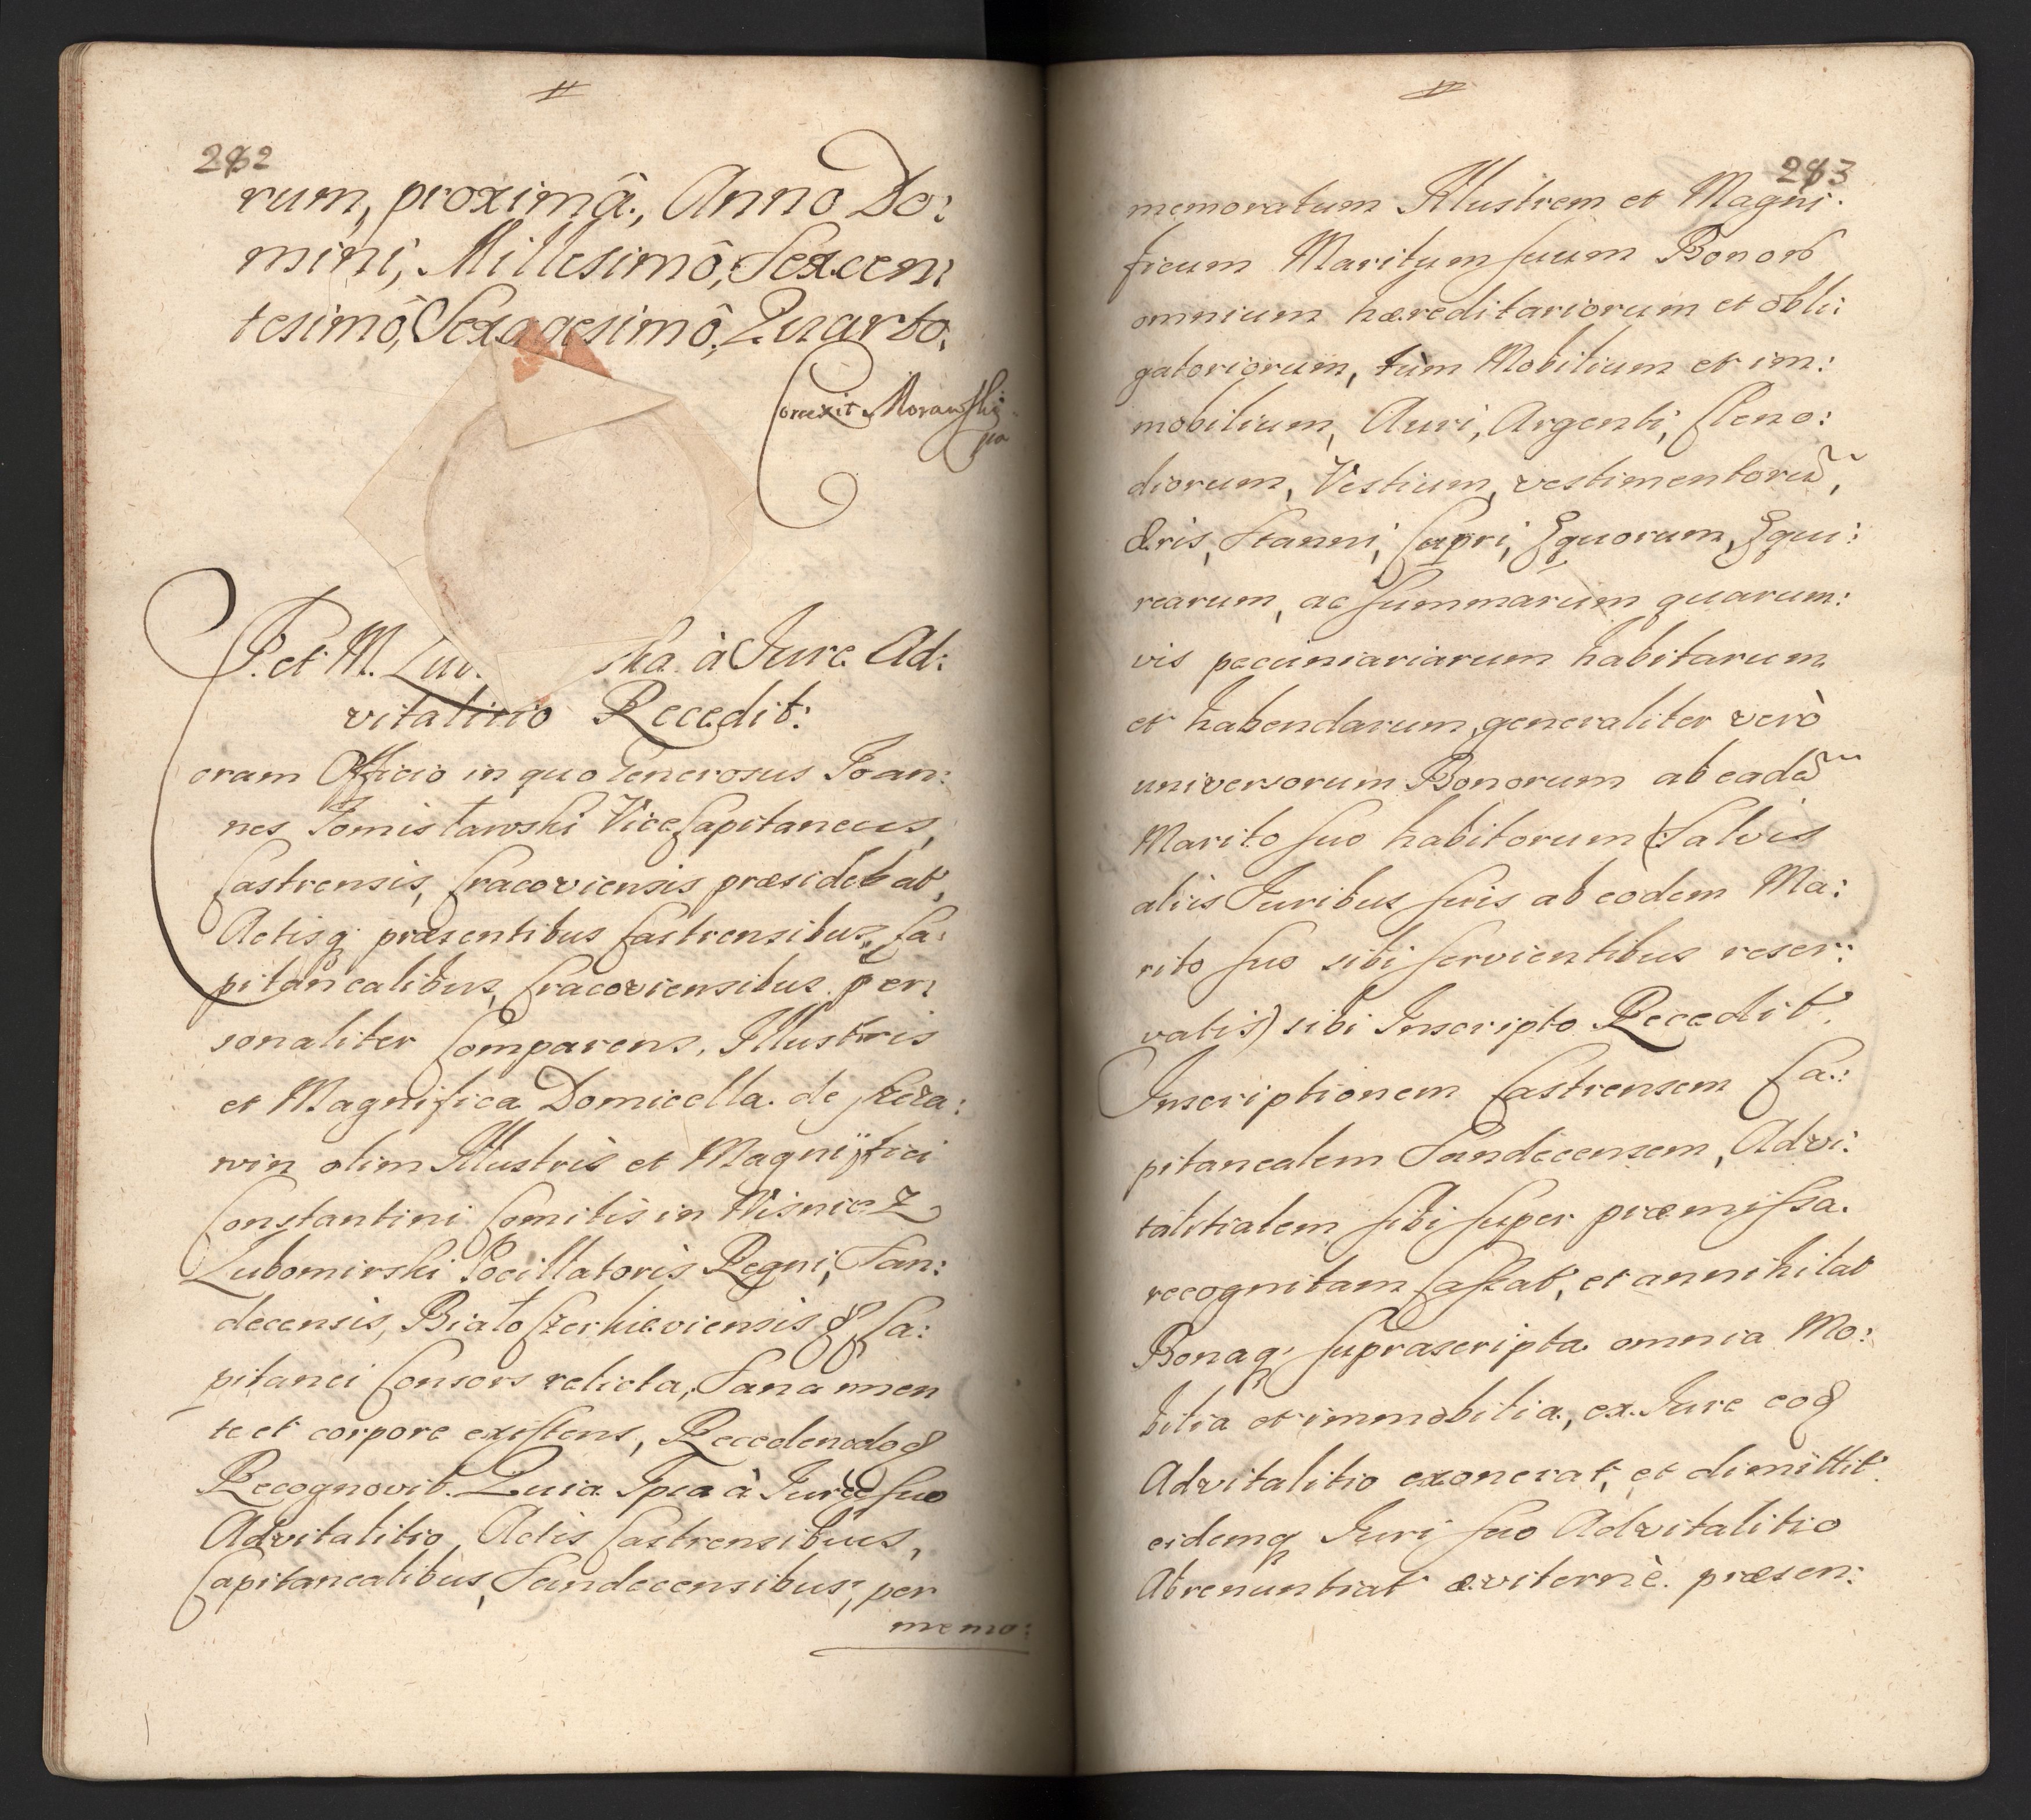 282
rum, proximâ, Anno Do:
mini, Millesimô, Sexcen:
tesimô, Sexagesimô, Quarto.
Correxit Morawski
I. et M. Lub. ska à Jure Ad:
vitalitio Recedit:
Coram Officio in quo Generosus Joan:
nes Tomisławski ViceCapitaneus,
Castrensis, Cracoviensis præsidebat,
Actisq; præsentibus Castrensibus, Ca:
pitanealibus, Cracoviensibus per:
sonaliter Comparens, Illustris
et Magnifica Domicella de
win olim Illustris et Magnifici
Constantini Comitis in Wisnicz
Lubomirski Pocillatoris Regni, San:
decensis, Biało Czerkieviensis & Ca:
pitanei Consors relicta, Sana men
te et corpore existens, Recedendoq
Recognovit. Quia Ipsa à Jure suo
Advitalitio, Actis Castrensibus,
Capitanealibus, Sandecensibus, per
memo:
283
memoratum Illustrem et Magni:
ficum Maritum suum Bonor
omnium hæreditariorum et obli:
gatoriorum, tùm Mobilium et im:
mobilium, Auri, Argenti, Cleno:
diorum, Vestium, vestimentorũ,
Æris, Stanni, Cupri, Equorum, Equi:
rearum, ac summarum quarum:
vis pecuniariarum habitarum
et habendarum, generaliter verò
universorum Bonorum ab eadẽ
Marito suo habitorum (Salvis
aliis Juribus suis ab eodem Ma:
rito suo sibi servientibus reser:
vatis) sibi Inscripto Recedit.
Inscriptionem Castrensem Ca:
pitanealem Sandecensem, Advi:
talitialem sibi super præmissa
recognitam Cassat, et annihilat
Bonaq; suprascripta omnia Mo:
bilia et immobilia, ex Jure eoq
Advitalitio exonerat, et dimittit
eidemq Juri suo Advitalitio
Abrenuntiat æviternè præsen: